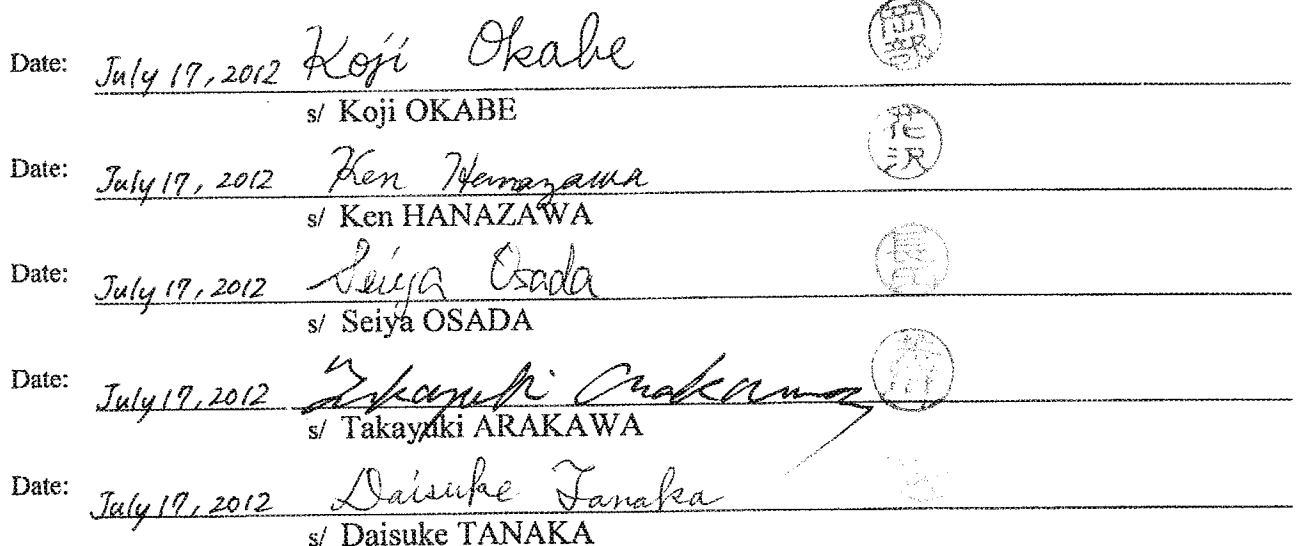 Date: July 17, 2012 Koji Okabe 岡部
s/ Koji OKABE
Date: July 17, 2012 Ken Hanazawa 花沢
s/ Ken HANAZAWA
Date: July 17, 2012 Seiya Osada 長田
s/ Seiya OSADA
Date: July 17, 2012 Takayuki Arakawa
s/ Takayuki ARAKAWA
Date: July 17, 2012 Daisuke Tanaka
s/ Daisuke TANAKA